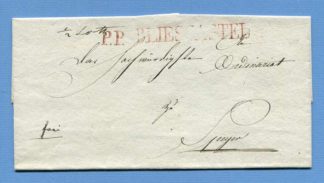 P.P. BLIESKASTEL
das Hochwürdigste Ordinariat
zu
Speyer
frei